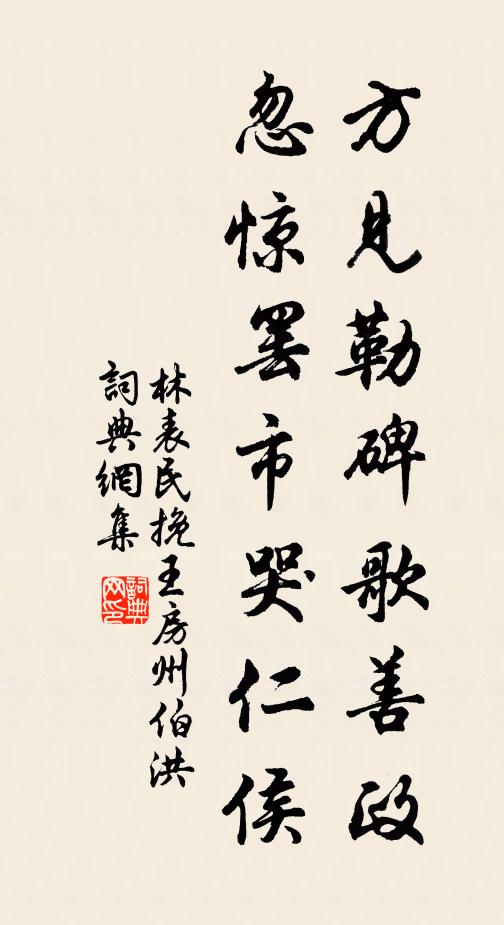 方見勒碑歌善政
忽惊罢市哭仁侯
林表民挽王房州伯洪
詞典網集
詞典网印